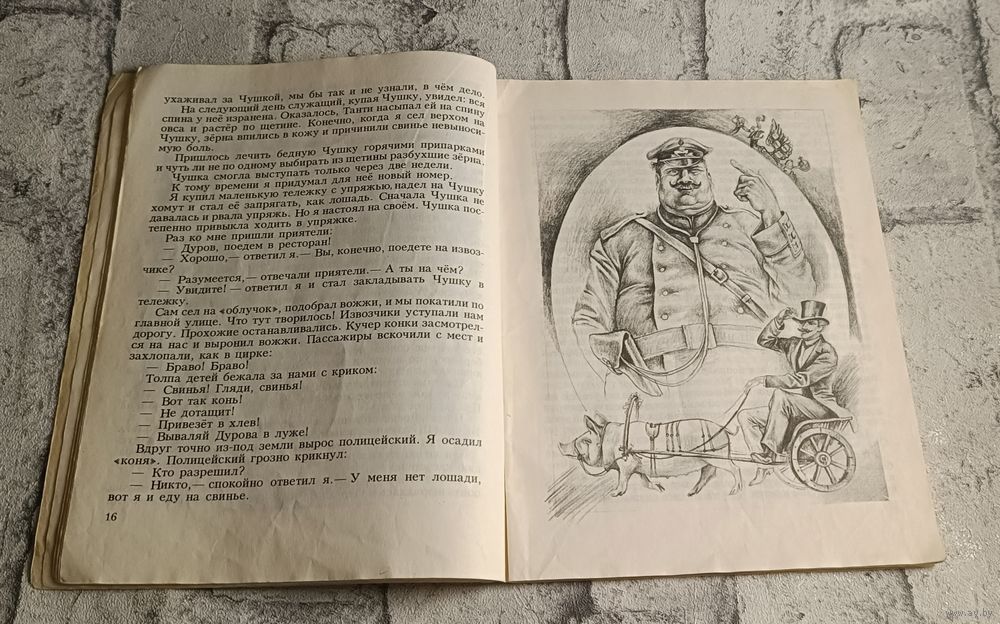 ухаживал за Чушкой, мы бы так и не узнали, в чём дело.
На следующий день служащий, купая Чушку, увидел: вся
спина у неё изранена. Оказалось, Танти насыпал ей на спину
овса и растёр по щетине. Конечно, когда я сел верхом на
Чушку, зёрна впились в кожу и причинили свинье невыноси-
мую боль.
Пришлось лечить бедную Чушку горячими припарками
и чуть ли не по одному выбирать из щетины разбухшие зёрна.
Чушка смогла выступать только через две недели.
К тому времени я придумал для неё новый номер.
Я купил маленькую тележку с упряжью, надел на Чушку
хомут и стал её запрягать, как лошадь. Сначала Чушка не
давалась и рвала упряжь. Но я настоял на своём. Чушка пос-
тепенно привыкла ходить в упряжке.
Раз ко мне пришли приятели:
— Дуров, поедем в ресторан!
— Хорошо,— ответил я.— Вы, конечно, поедете на извоз-
чике?
— Разумеется,— отвечали приятели.— А ты на чём?
— Увидите! — ответил я и стал закладывать Чушку в
тележку.
Сам сел на «облучок», подобрал вожжи, и мы покатили по
главной улице. Что тут творилось! Извозчики уступали нам
дорогу. Прохожие останавливались. Кучер конки засмотрел-
ся на нас и выронил вожжи. Пассажиры вскочили с мест и
захлопали, как в цирке:
— Браво! Браво!
Толпа детей бежала за нами с криком:
— Свинья! Гляди, свинья!
— Вот так конь!
— Не дотащит!
— Привезёт в хлев!
— Вываляй Дурова в луже!
Вдруг точно из-под земли вырос полицейский. Я осадил
«коня». Полицейский грозно крикнул:
— Кто разрешил?
— Никто,— спокойно ответил я.— У меня нет лошади,
вот я и еду на свинье.
16
www.ay.by